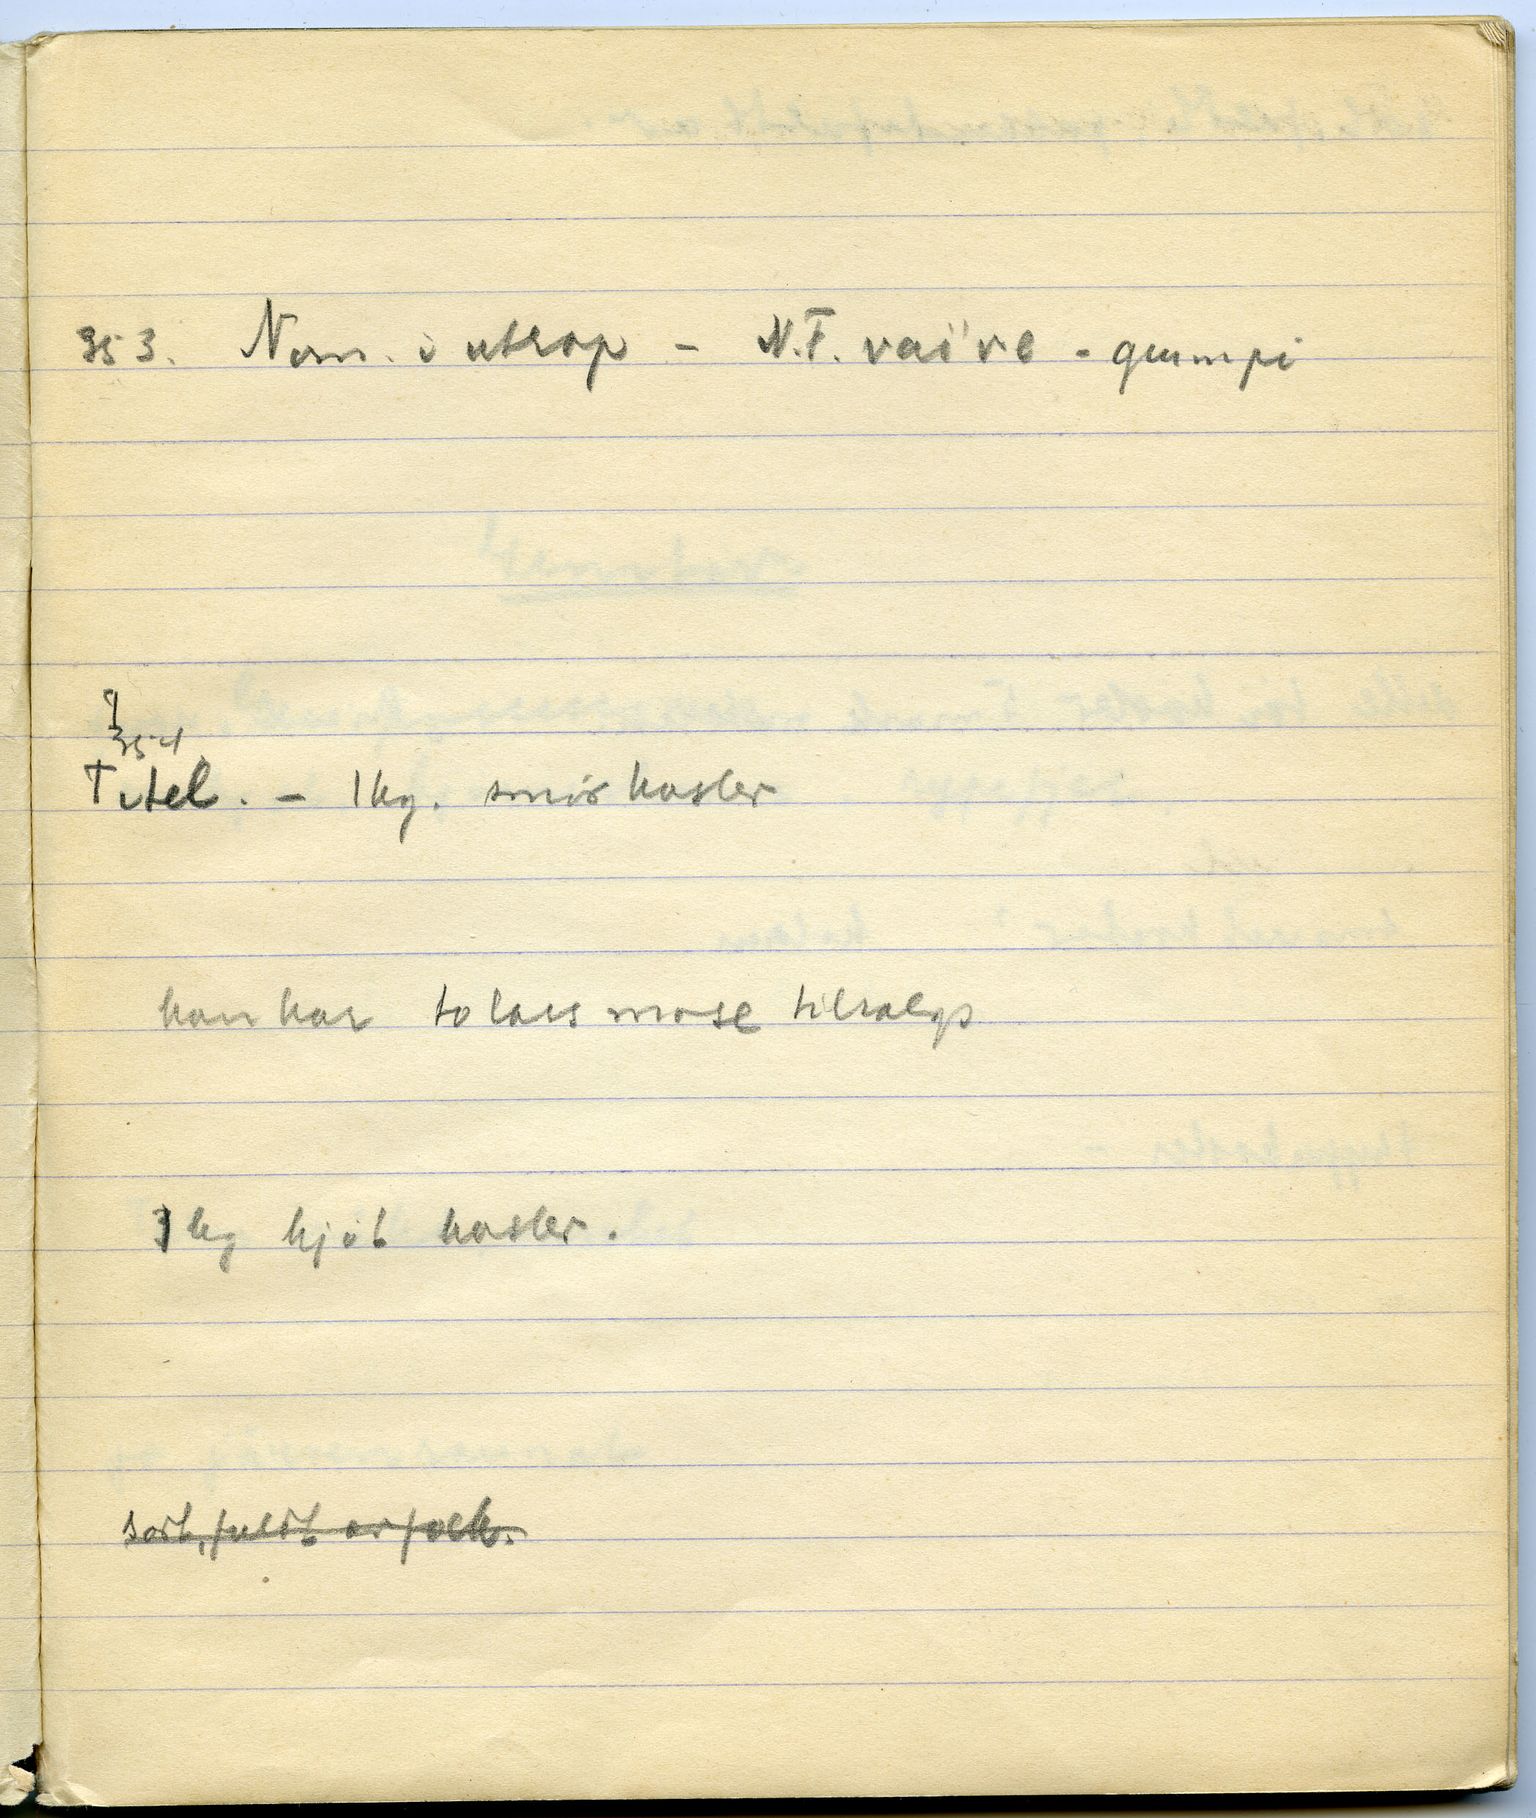 353. Nom. i utrop – N.F. vaive - gumpi
354
Titel. – 1 kg. smör koster
han har to lass mose tilsalgs
1 kg kjöt koster.
sort, fuldt av folk.